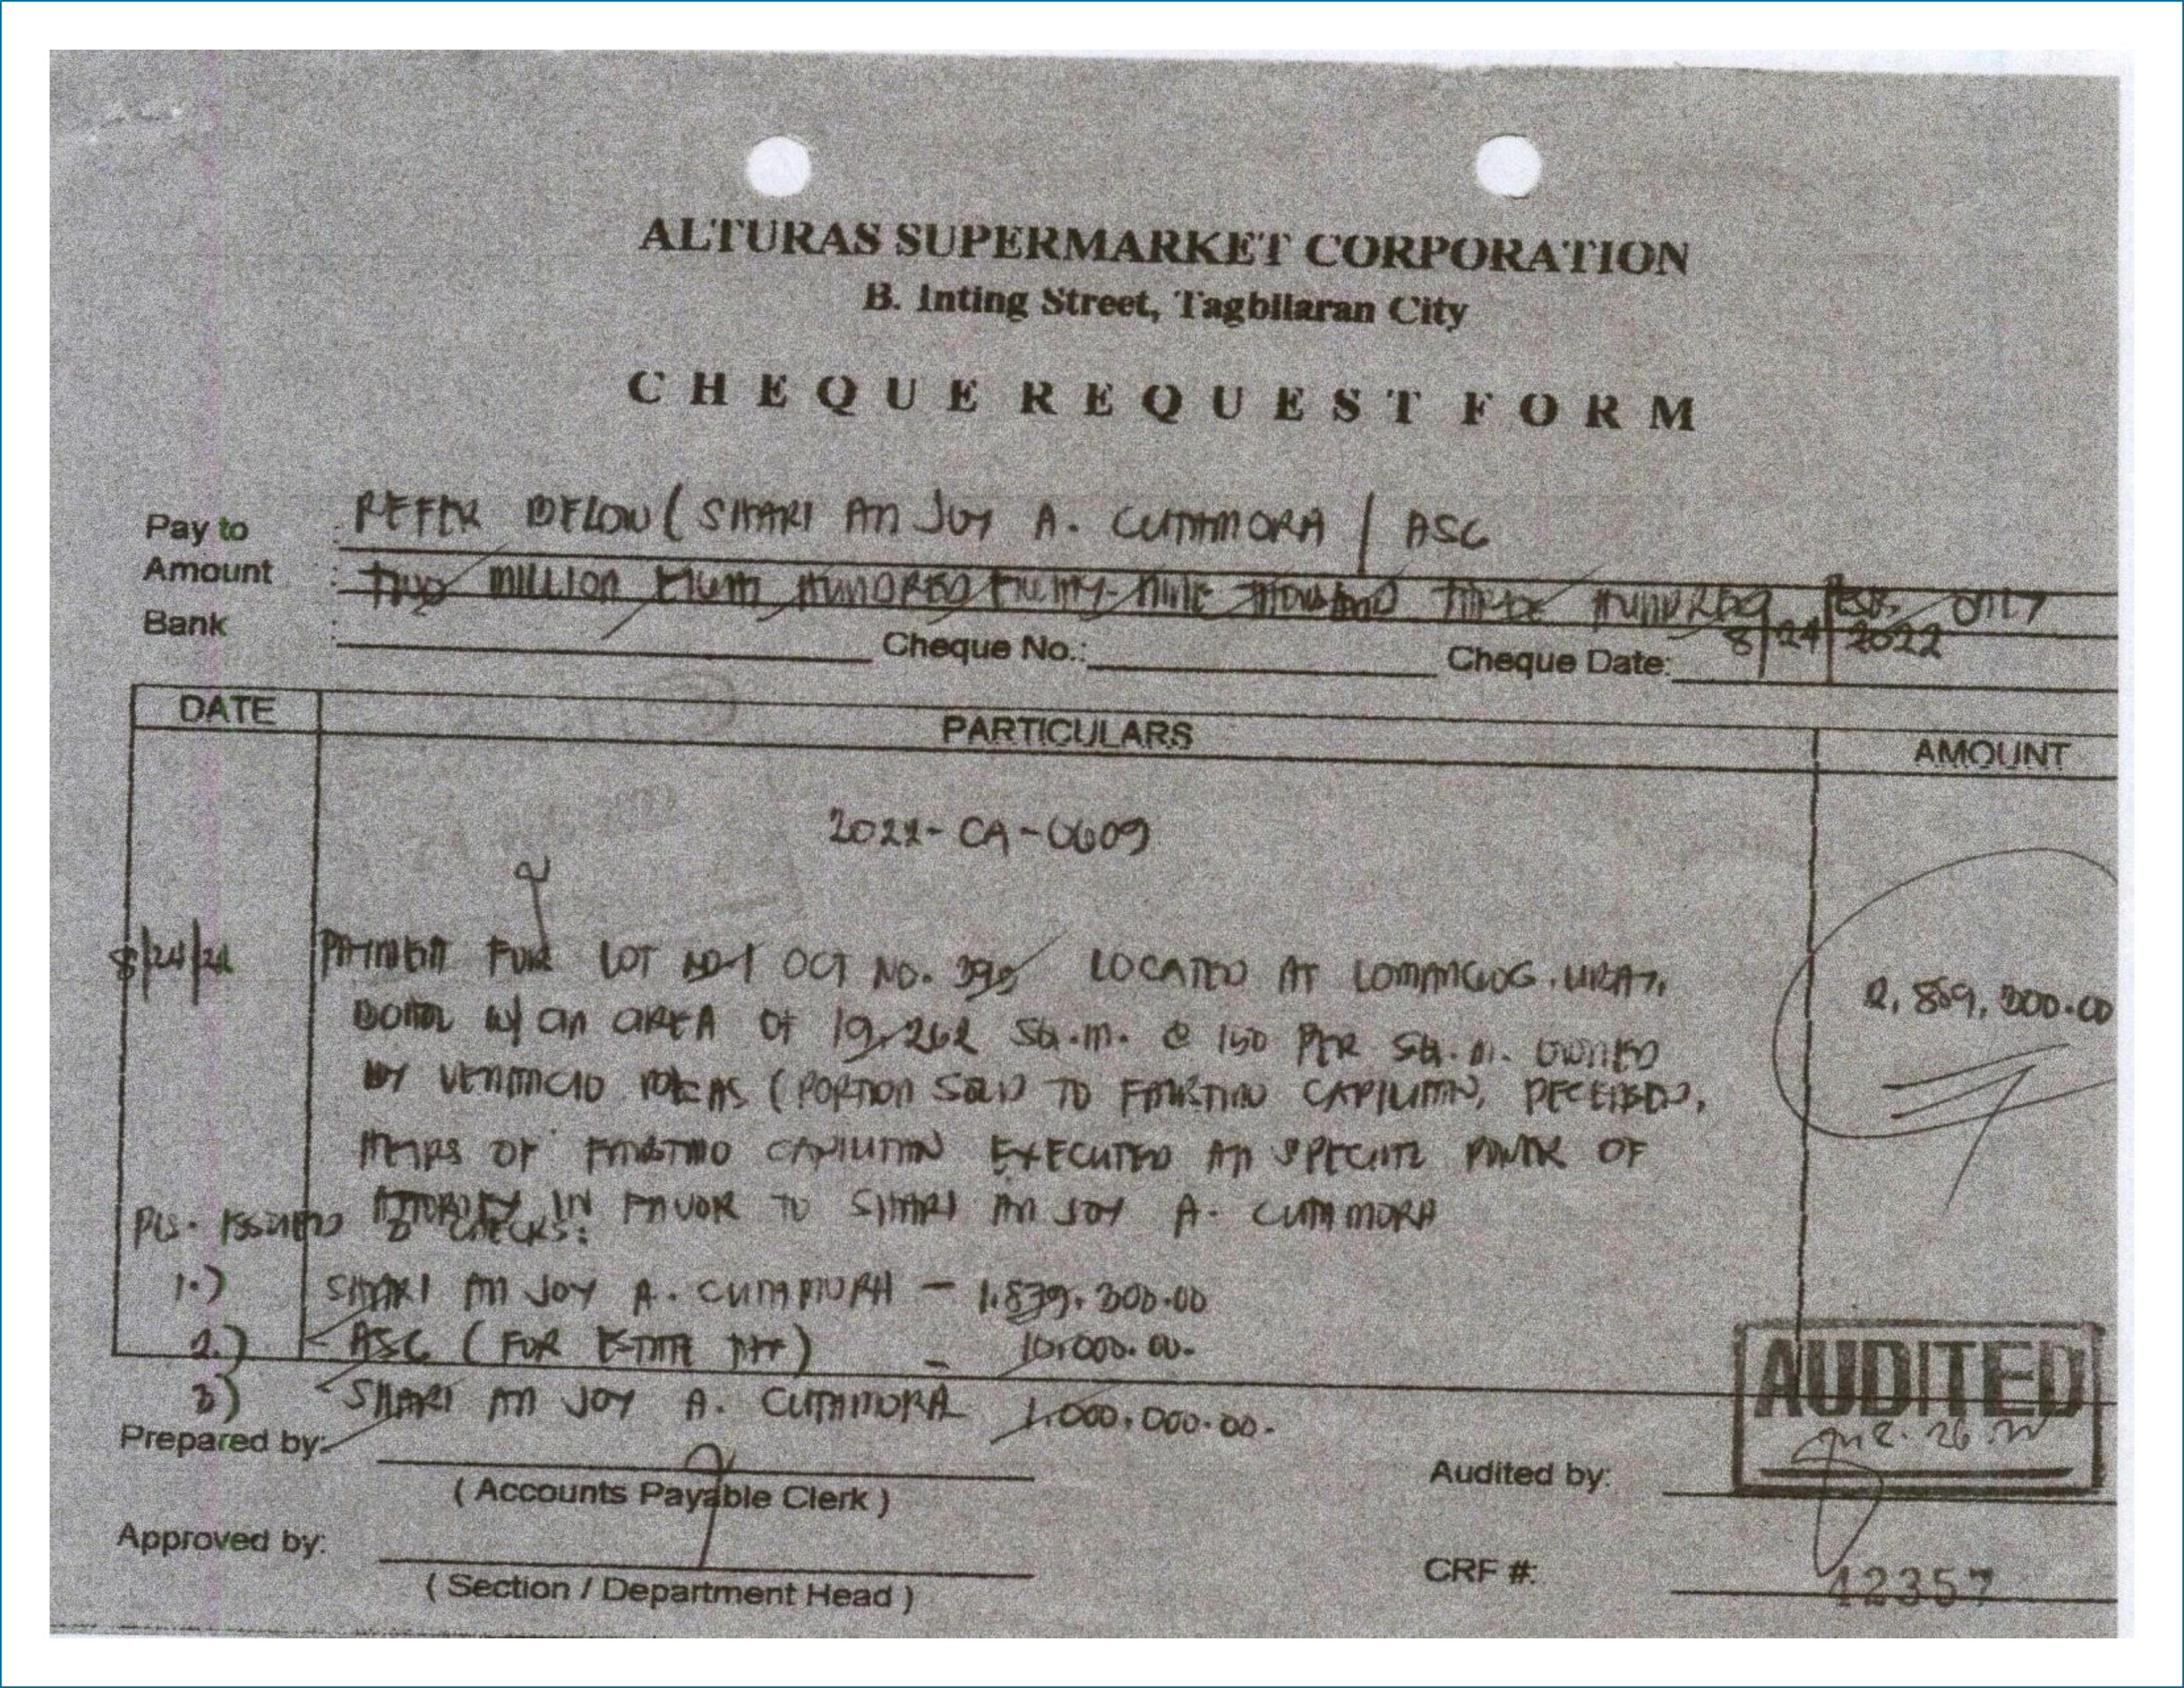 ALTURAS SUPERMARKET CORPORATION
B. Inting Street, Tagbilaran City
CHEQUE REQUEST FORM
Pay to : REFER BELOW ( SHARI AN JOY A. CUTAMORA / ASC
Amount : TWO MILLION EIGHT HUNDRED FIFTY-NINE THOUSAND THREE HUNDRED PESOS ONLY
Bank : Cheque No.: Cheque Date: 8/24/2022
DATE PARTICULARS AMOUNT
2022-CA-0609
8/24/22 PAYMENT FOR LOT NO 1 OCT NO. LOCATED AT LOMANGLOG, UBAY,
BOHOL W/ AN AREA OF 19,262 SQ.M. @ 150 PER SQ.M. OWNED 2,889,300.00
BY VENANCIO (PORTION SOLD TO FAUSTINO CAPILITAN, DECEASED,
HEIRS OF FAUSTINO CAPILITAN EXECUTED AN SPECIAL POWER OF
ATTORNEY IN FAVOR TO SHARI AN JOY A. CUTAMORA
PLS. ISSUED 3 CHECKS:
1.) SHARI AN JOY A. CUTAMORA - 1,879,300.00
2.) ASC ( FOR ESTATE TAX ) - 10,000.00.
3) SHARI AN JOY A. CUTAMORA 1,000,000.00.
AUDITED
26
Prepared by:
( Accounts Payable Clerk )
Audited by:
Approved by:
( Section / Department Head )
CRF #: 12357